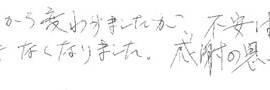 から変わりましたか 不安は
なくなりました。感謝の思